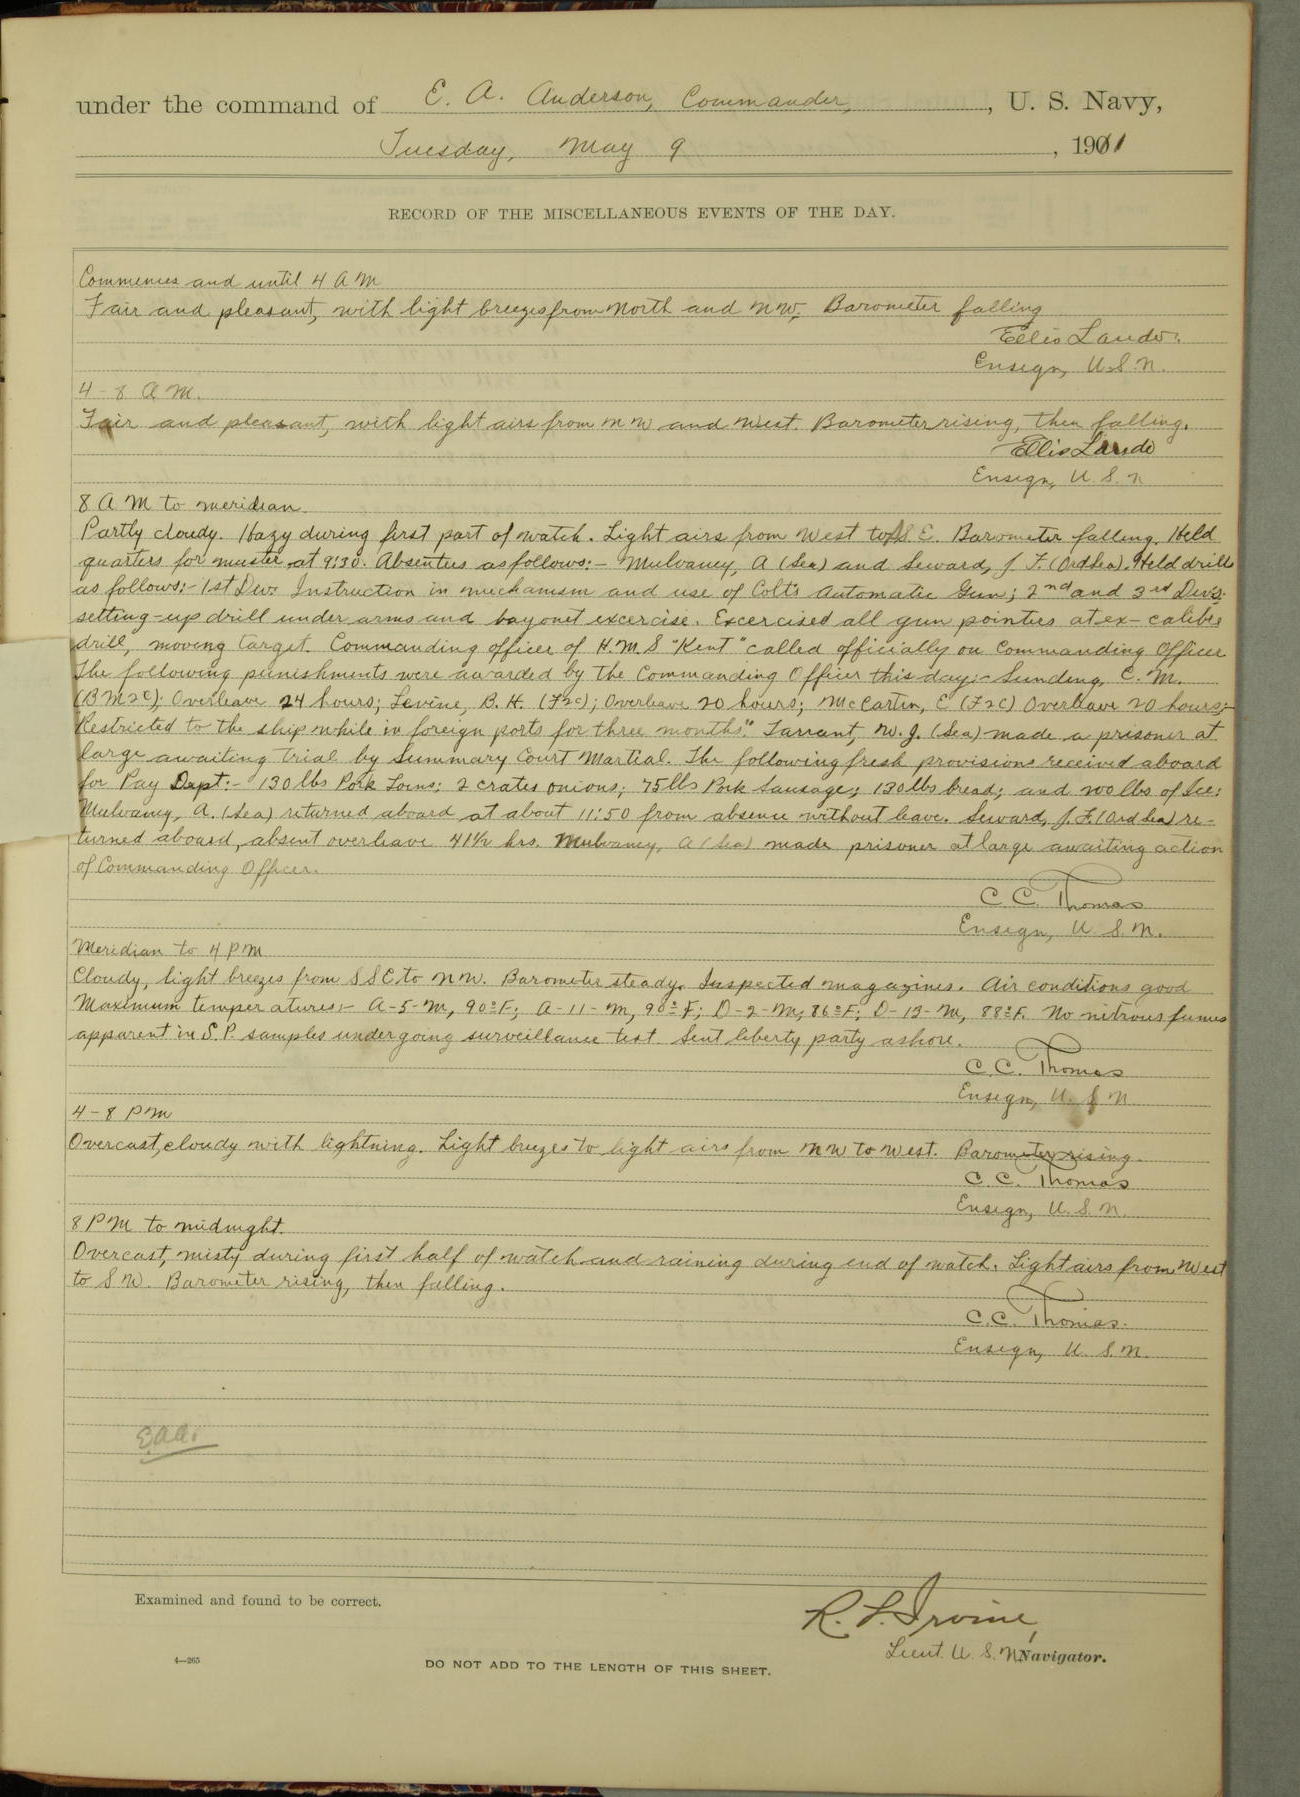 under the command of E. A. Anderson, Commander, , U. S. Navy,
Tuesday, May 9 , 1911
RECORD OF THE MISCELLANEOUS EVENTS OF THE DAY.
Commences and until 4 A M
Fair and pleasant, with light breezes from North and NW, Barometer falling
Ellis Lando.
Ensign, U.S.N.
4 - 8 A M.
Fair and pleasant, with light airs from NW and West. Barometer rising, then falling.
Ellis Lando
Ensign, U. S. N
8 A M to meridian.
Partly cloudy. Hazy during first part of watch. Light airs from West to S E. Barometer falling. Held
quarters for muster at 9:30. Absentees as follows:- Mulvaney, A (Sea) and Seward, J. F. (Ord Sea). Held drills
as follows:- 1st Div. Instruction in mechanism and use of Colts Automatic Gun; 2nd and 3rd Divs.
setting-up drill under arms and bayonet excercise. Excercised all gun pointers at ex-calibre
drill, moving target. Commanding officer of H.M.S "Kent" called officially on Commanding Officer
The following punishments were awarded by the Commanding Officer this day:- Sunding, C. M.
(BM2c); Overleave 24 hours; Levine, B. H. (F2c); Overleave 20 hours; McCartin, E (F2c) Overleave 20 hours;-
"Restricted to the ship while in foreign ports for three months". Tarrant, W. J. (Sea) made a prisoner at
large awaiting trial by Summary Court Martial. The following fresh provisions received aboard
for Pay Dept:- 130 lbs Pork Loins; 2 crates onions; 75 lbs Pork Sausage; 130 lbs bread; and 200 lbs of Ice:
Mulvaney, A. (Sea) returned aboard at about 11:50 from absence without leave. Seward, J. F. (Ord Sea) re-
turned aboard, absent overleave 41½ hrs. Mulvaney, A (Sea) made prisoner at large awaiting action
of Commanding Officer.
C. C. Thomas
Ensign, U. S. N.
Meridian to 4 P M
Cloudy, light breezes from SSE to NW. Barometer steady. Inspected magazines. Air conditions good
Maximum temperatures:- A-5-M, 90°F; A-11-M, 90°F; D-2-M, 86°F; D-13-M, 88°F. No nitrous fumes
apparent in S.P. samples undergoing surveillance test. Sent liberty party ashore.
C. C. Thomas
Ensign, U. S. N.
4 - 8 P M
Overcast, cloudy with lightning. Light breezes to light airs from NW to West. Barometer rising.
C. C. Thomas
Ensign, U. S. N.
8 P M to midnight.
Overcast, misty during first half of watch and raining during end of watch. Light airs from West
to S W. Barometer rising, then falling.
C. C. Thomas.
Ensign, U. S. N.
E.A.A.
Examined and found to be correct.
R. L. Irvine,
Lieut. U. S. N. Navigator.
4—265
DO NOT ADD TO THE LENGTH OF THIS SHEET.